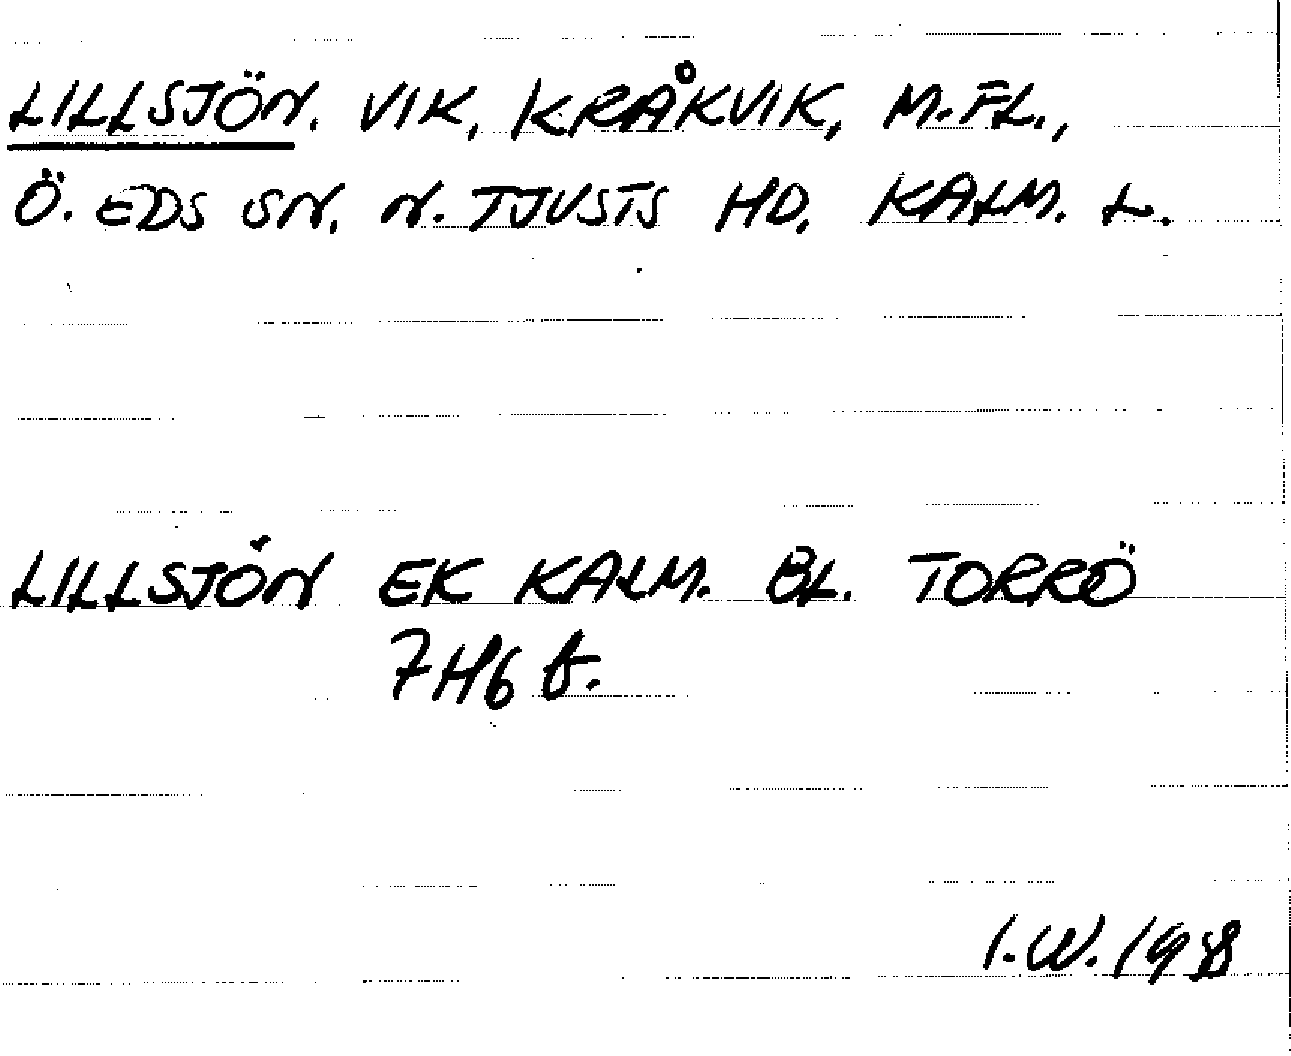 LILLSJÖN. VIK, KRÅKVIK, M.FL.,
Ö. EDS SN. N. TJUSTS HD. KALM. L.
LILLSJÖN EK KALM. BL. TORRÖ
7H6 f.
I.W.